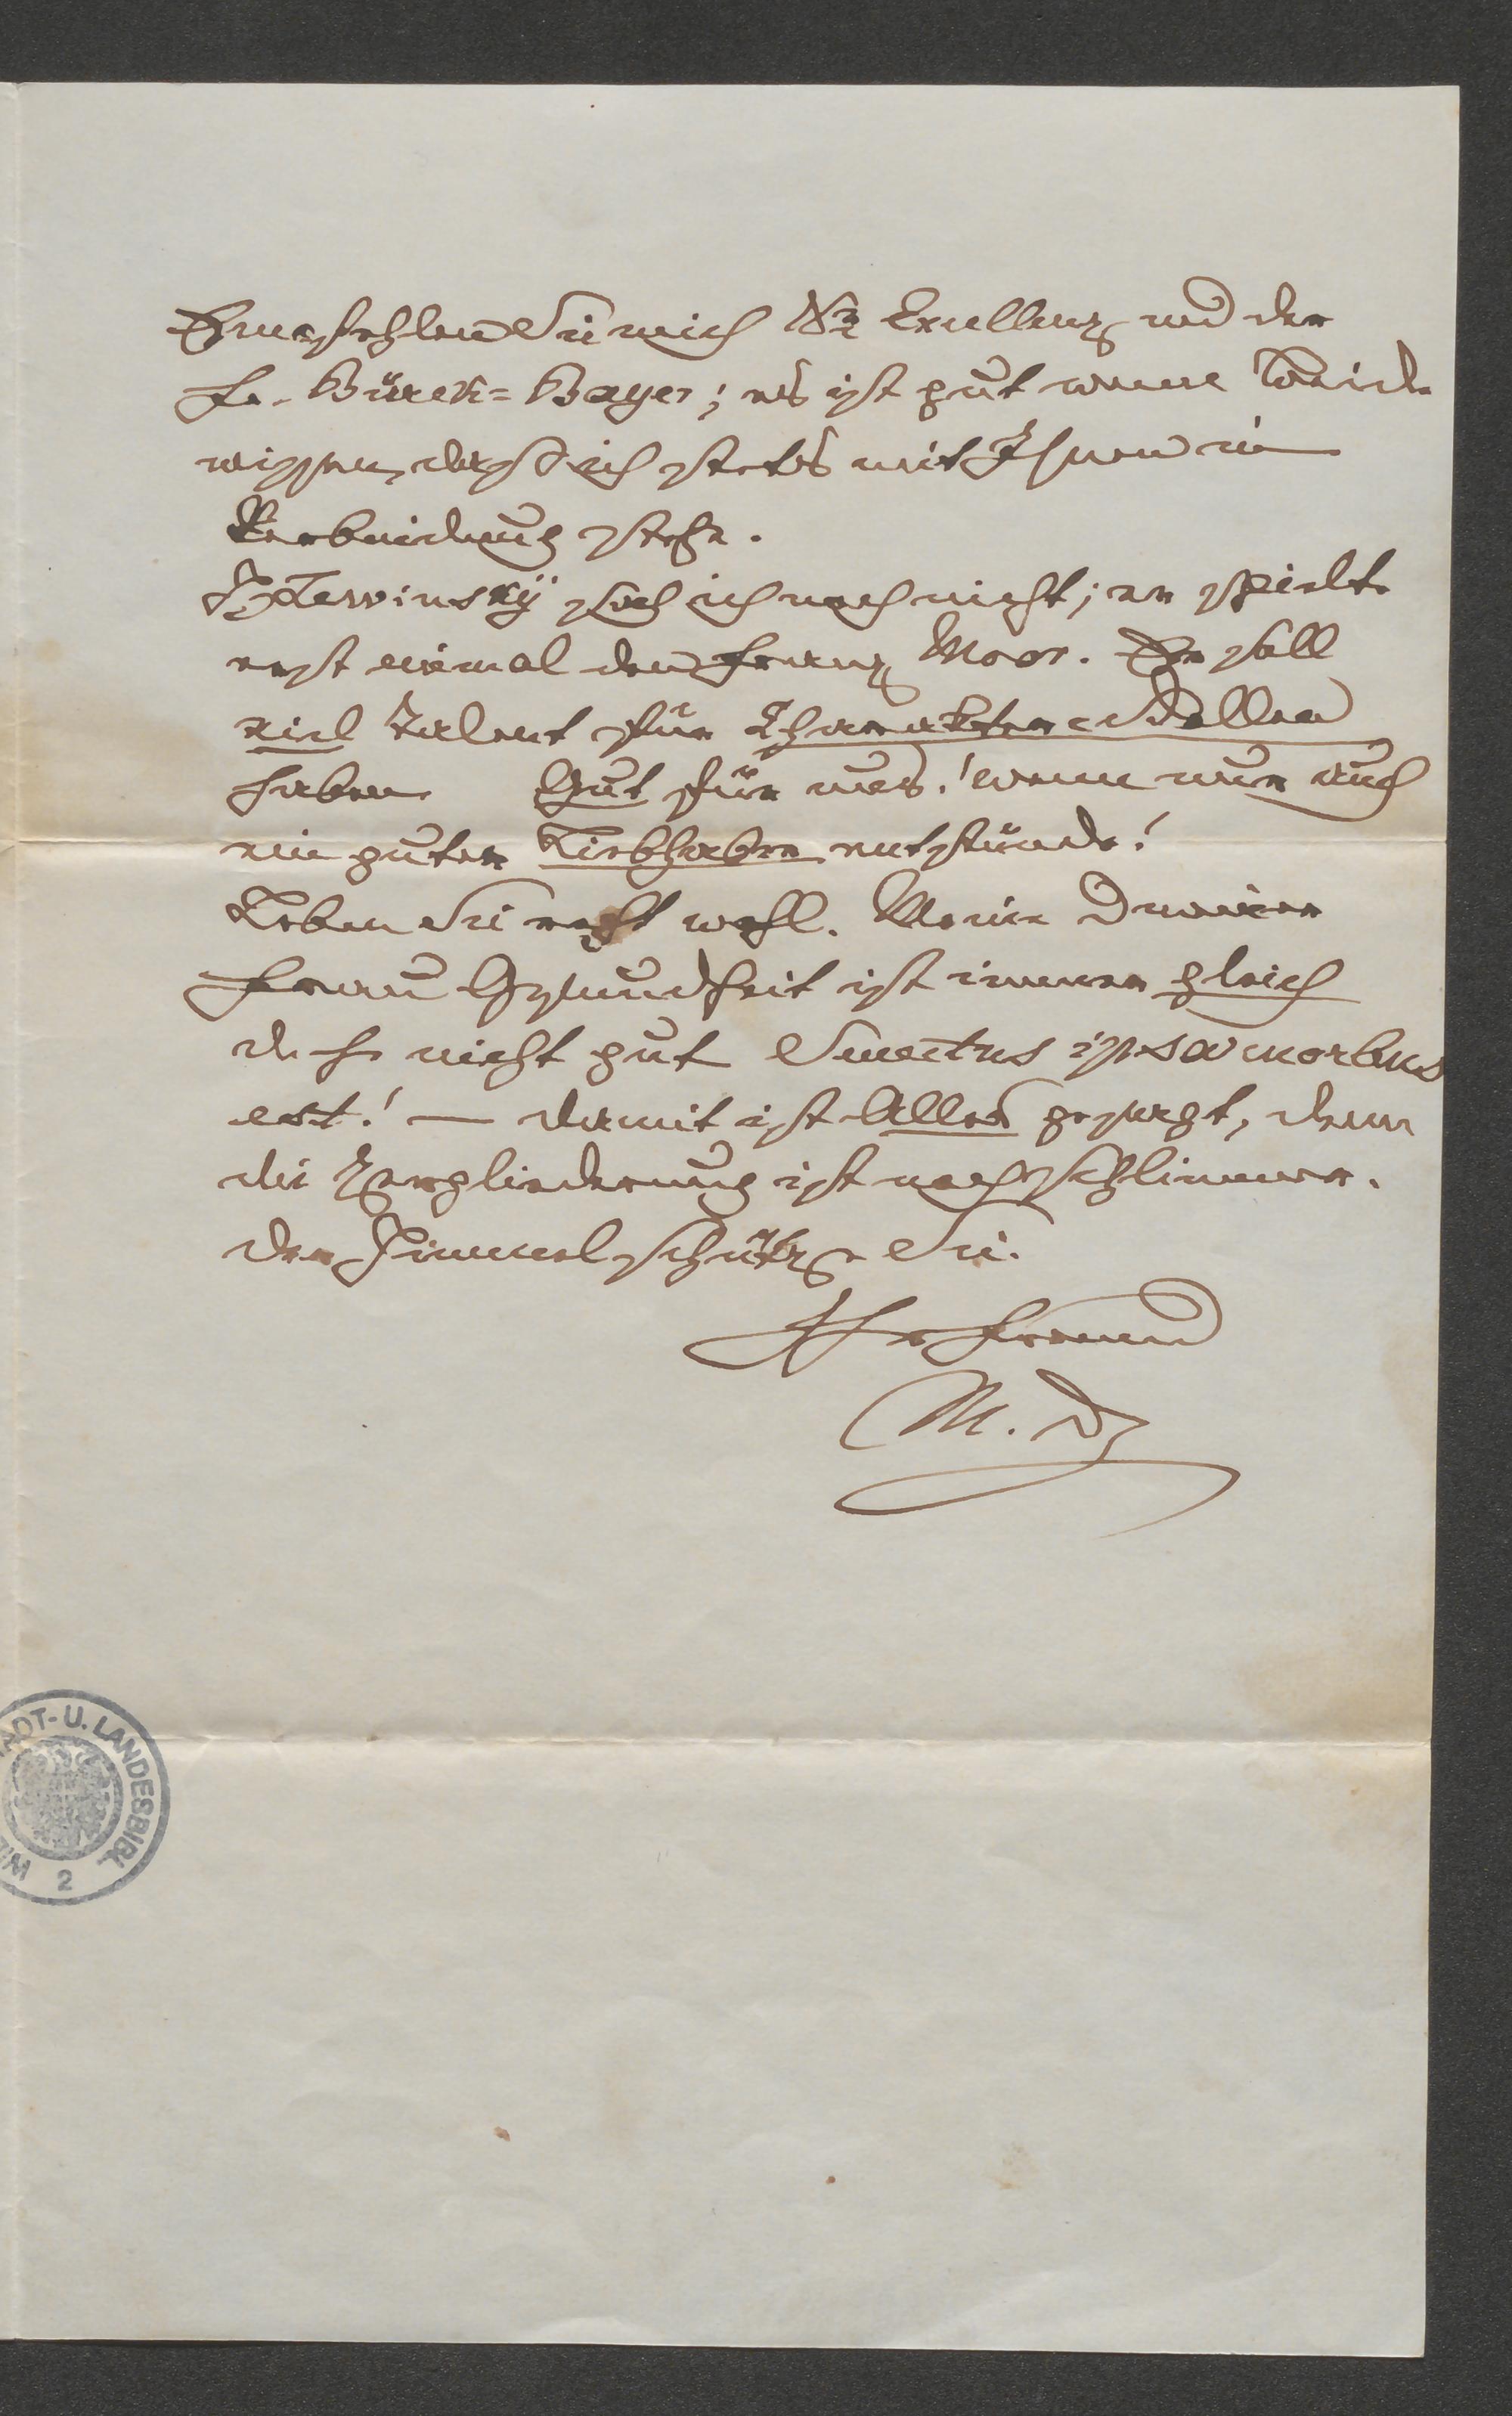 Empfehlen Sie mich Sr Excellenz und der
Fr. Bürck=Bayer; es ist gut wenn Beide
wissen, daß ich stets mit Ihnen in
Verbindung stehe.
H Lewinsky sah ich noch nicht; er spielte
erst einmal den Franz Moor. Er soll
viel Talent für Charakter=Rollen
haben. Gut für uns! wenn nur auch
ein guter Liebhaber entstünde!
Leben Sie recht wohl. Meiner
Frau Gesundheit ist immer gleich
d. h. nicht gut Senectus ipsa morbus
est! — damit ist Alles gesagt, denn
die Zergliederung ist noch schlimmer.
Der Himmel schütze Sie.
Ihr Freund
M.
STADT- U. LANDESBIBL.
WIEN
2